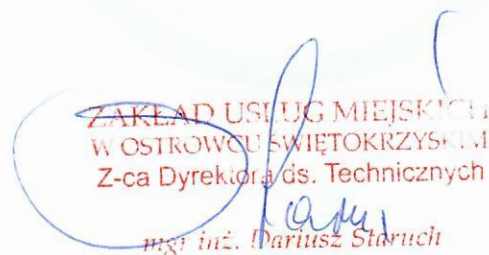 ZAKŁAD USŁUG MIEJSKICH
W OSTROWCU ŚWIĘTOKRZYSKIM
Z-ca Dyrektora ds. Technicznych
mgr inż. Dariusz Staruch